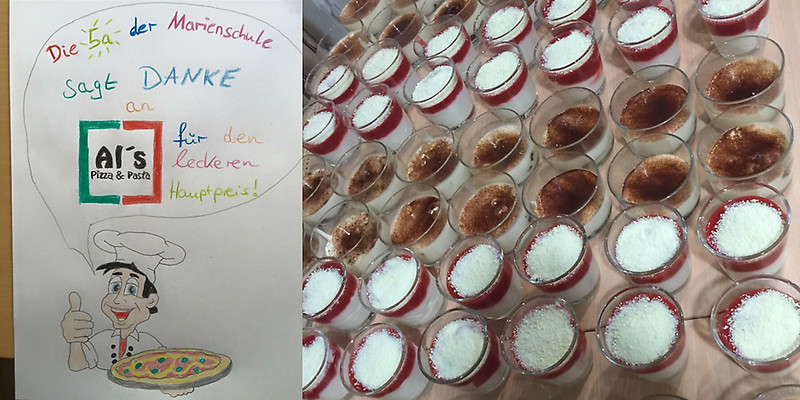 Die 5a der Marienschule
sagt DANKE
an
Al´s
Pizza & Pasta
für den
leckeren
Hauptpreis!